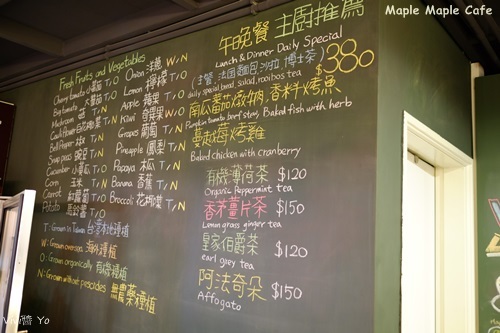 Maple Maple Cafe
午晚餐 主廚推薦
Lunch & Dinner Daily Special
(主餐, 法國麵包, 沙拉, 博士茶)
daily special, bread, salad, rooibos tea
$380
南瓜蕃茄燉牛肉, 香料烤魚
Pumpkin tomato beef stew, Baked fish with herb
蔓越莓烤雞
Baked chicken with cranberry
有機薄荷茶 $120
Organic Peppermint tea
香茅薑片茶 $150
Lemon grass ginger tea
皇家伯爵茶 $120
earl grey tea
阿法奇朵 $150
Affogato
Fresh Fruits and Vegetables
Cherry tomato 小蕃茄 T/O
Big tomato 大蕃茄 T/O
Mushroom T/O
Cauliflower T/O
Bell Pepper T/O
Snap peas T/O
Cucumber 小黃瓜 T/O
Corn 玉米 T/N
Carrot 紅蘿蔔 T/O
Potato 馬鈴薯 T/O
Onion 洋蔥 W/N
Lemon 檸檬 T/O
Apple 蘋果 T/O
Kiwi 奇異果 W/O
Grapes 葡萄 T/N
Pineapple 鳳梨 T/N
Papaya 木瓜 T/N
Banana 香蕉 T/N
Broccoli 花椰菜 T/N
T: Grown in Taiwan 台灣本地種植
W: Grown overseas 海外種植
O: Grown organically 有機種植
N: Grown without pesticides 無農藥種植